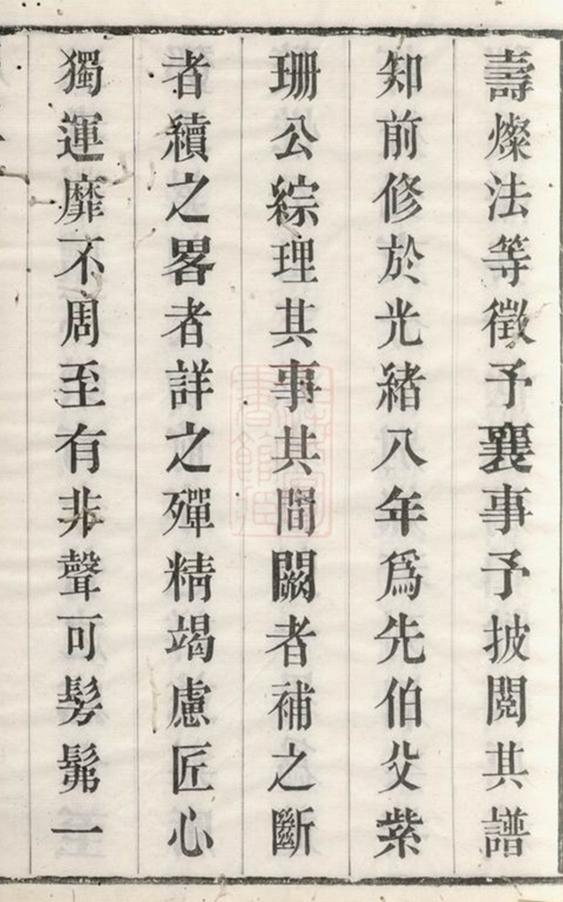 壽燦法等徵予襄事予披閱其譜
知前修於光緒八年爲先伯父紫
珊公綜理其事其間闕者補之斷
者續之畧者詳之殫精竭慮匠心
獨運靡不周至有非聲可髣髴一